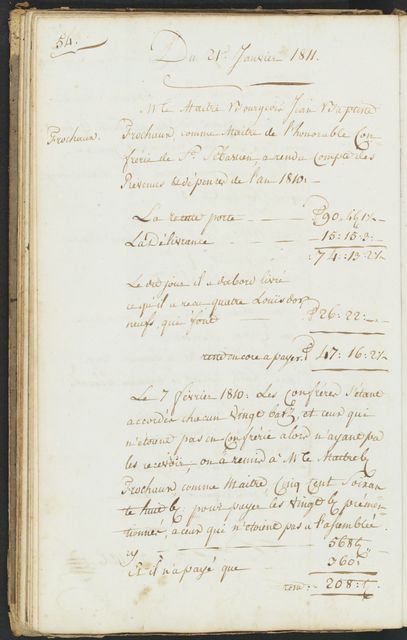 54.
Du 21e Janvier 1811.
Mr le Maitre Bourgeois Jean Baptiste
Prochaux.
Prochaux, comme Maitre de l'honorable Con-
frérie de St. Sébastien, a rendu Compte des
Revenus & dépenses de l'an 1810.
La recette porte
La Délivrance
15: 15. 3:
74: 13. 2
Le dit jour il a dabord livré
ce qu'il a recu quatre Louis d'or
neufs, qui font
26: 22:
reste encore a payer
47: 16: 2
Le 7 février 1810: Les Confrères s'étant
accordés chacun Vingt batz, et ceux qui
n'étoient pas en Confrérie alors n'ayant pa
les recevoir, on a remis à Mr le Maitre
Prochaux comme Maitre Cinq Cent Soixan-
te huit bz: pour payer les Vingt bz prémen-
tionnés, a ceux qui n'étoient pas a l'assemblée.
568
Et il n'a payé que
360:
208: